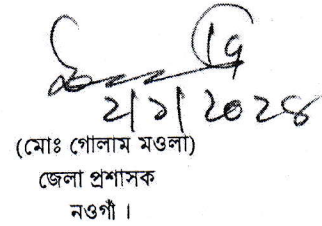 ২/১/২০২৪
(মোঃ গোলাম মওলা)
জেলা প্রশাসক
নওগাঁ ।